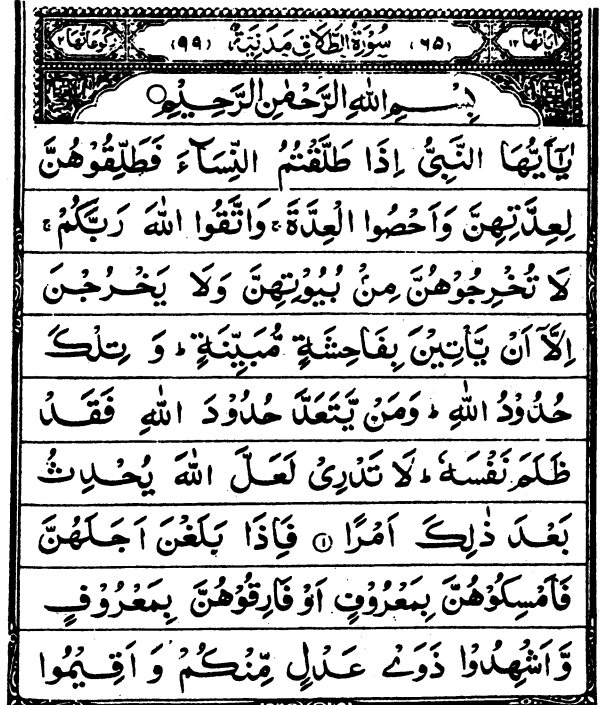 اٰيَاتُهَا ١٢ (٦٥) سُوْرَةُ الطَّلَاقِ مَدَنِيَّةٌ (٩٩) رُكُوْعَاتُهَا ٢
بِسْمِ اللّٰهِ الرَّحْمٰنِ الرَّحِيْمِ
يٰۤاَيُّهَا النَّبِىُّ اِذَا طَلَّقْتُمُ النِّسَآءَ فَطَلِّقُوْهُنَّ
لِعِدَّتِهِنَّ وَاَحْصُوا الْعِدَّةَ ۚ وَاتَّقُوا اللّٰهَ رَبَّكُمْ ۚ
لَا تُخْرِجُوْهُنَّ مِنْۢ بُيُوْتِهِنَّ وَلَا يَخْرُجْنَ
اِلَّاۤ اَنْ يَّاْتِيْنَ بِفَاحِشَةٍ مُّبَيِّنَةٍ ؕ وَ تِلْكَ
حُدُوْدُ اللّٰهِ ؕ وَمَنْ يَّتَعَدَّ حُدُوْدَ اللّٰهِ فَقَدْ
ظَلَمَ نَفْسَهٗ ؕ لَا تَدْرِىْ لَعَلَّ اللّٰهَ يُحْدِثُ
بَعْدَ ذٰلِكَ اَمْرًا ١ فَاِذَا بَلَغْنَ اَجَلَهُنَّ
فَاَمْسِكُوْهُنَّ بِمَعْرُوْفٍ اَوْ فَارِقُوْهُنَّ بِمَعْرُوْفٍ
وَّاَشْهِدُوْا ذَوَىْ عَدْلٍ مِّنْكُمْ وَ اَقِيْمُوا